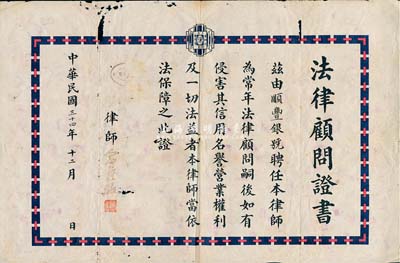 法律顧問證書
茲由順豐銀號聘任本律師
為常年法律顧問嗣後如有
侵害其信用名譽營業權利
及一切法益者本律師當依
法保障之此證
律師
中華民國三十四年十二月 日